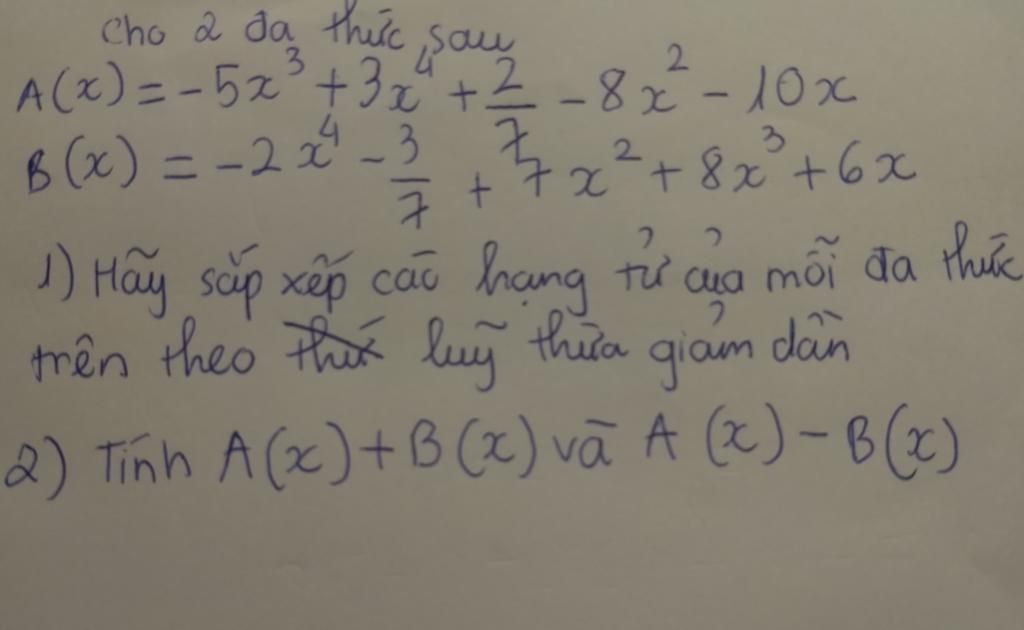 Cho 2 đa thức sau
A(x) = -5x³ + 3x⁴ + 2/7 - 8x² - 10x
B(x) = -2x⁴ - 3/7 + 7x² + 8x³ + 6x
1) Hãy sắp xếp các hạng tử của mỗi đa thức
trên theo luỹ thừa giảm dần
2) Tính A(x) + B(x) và A(x) - B(x)